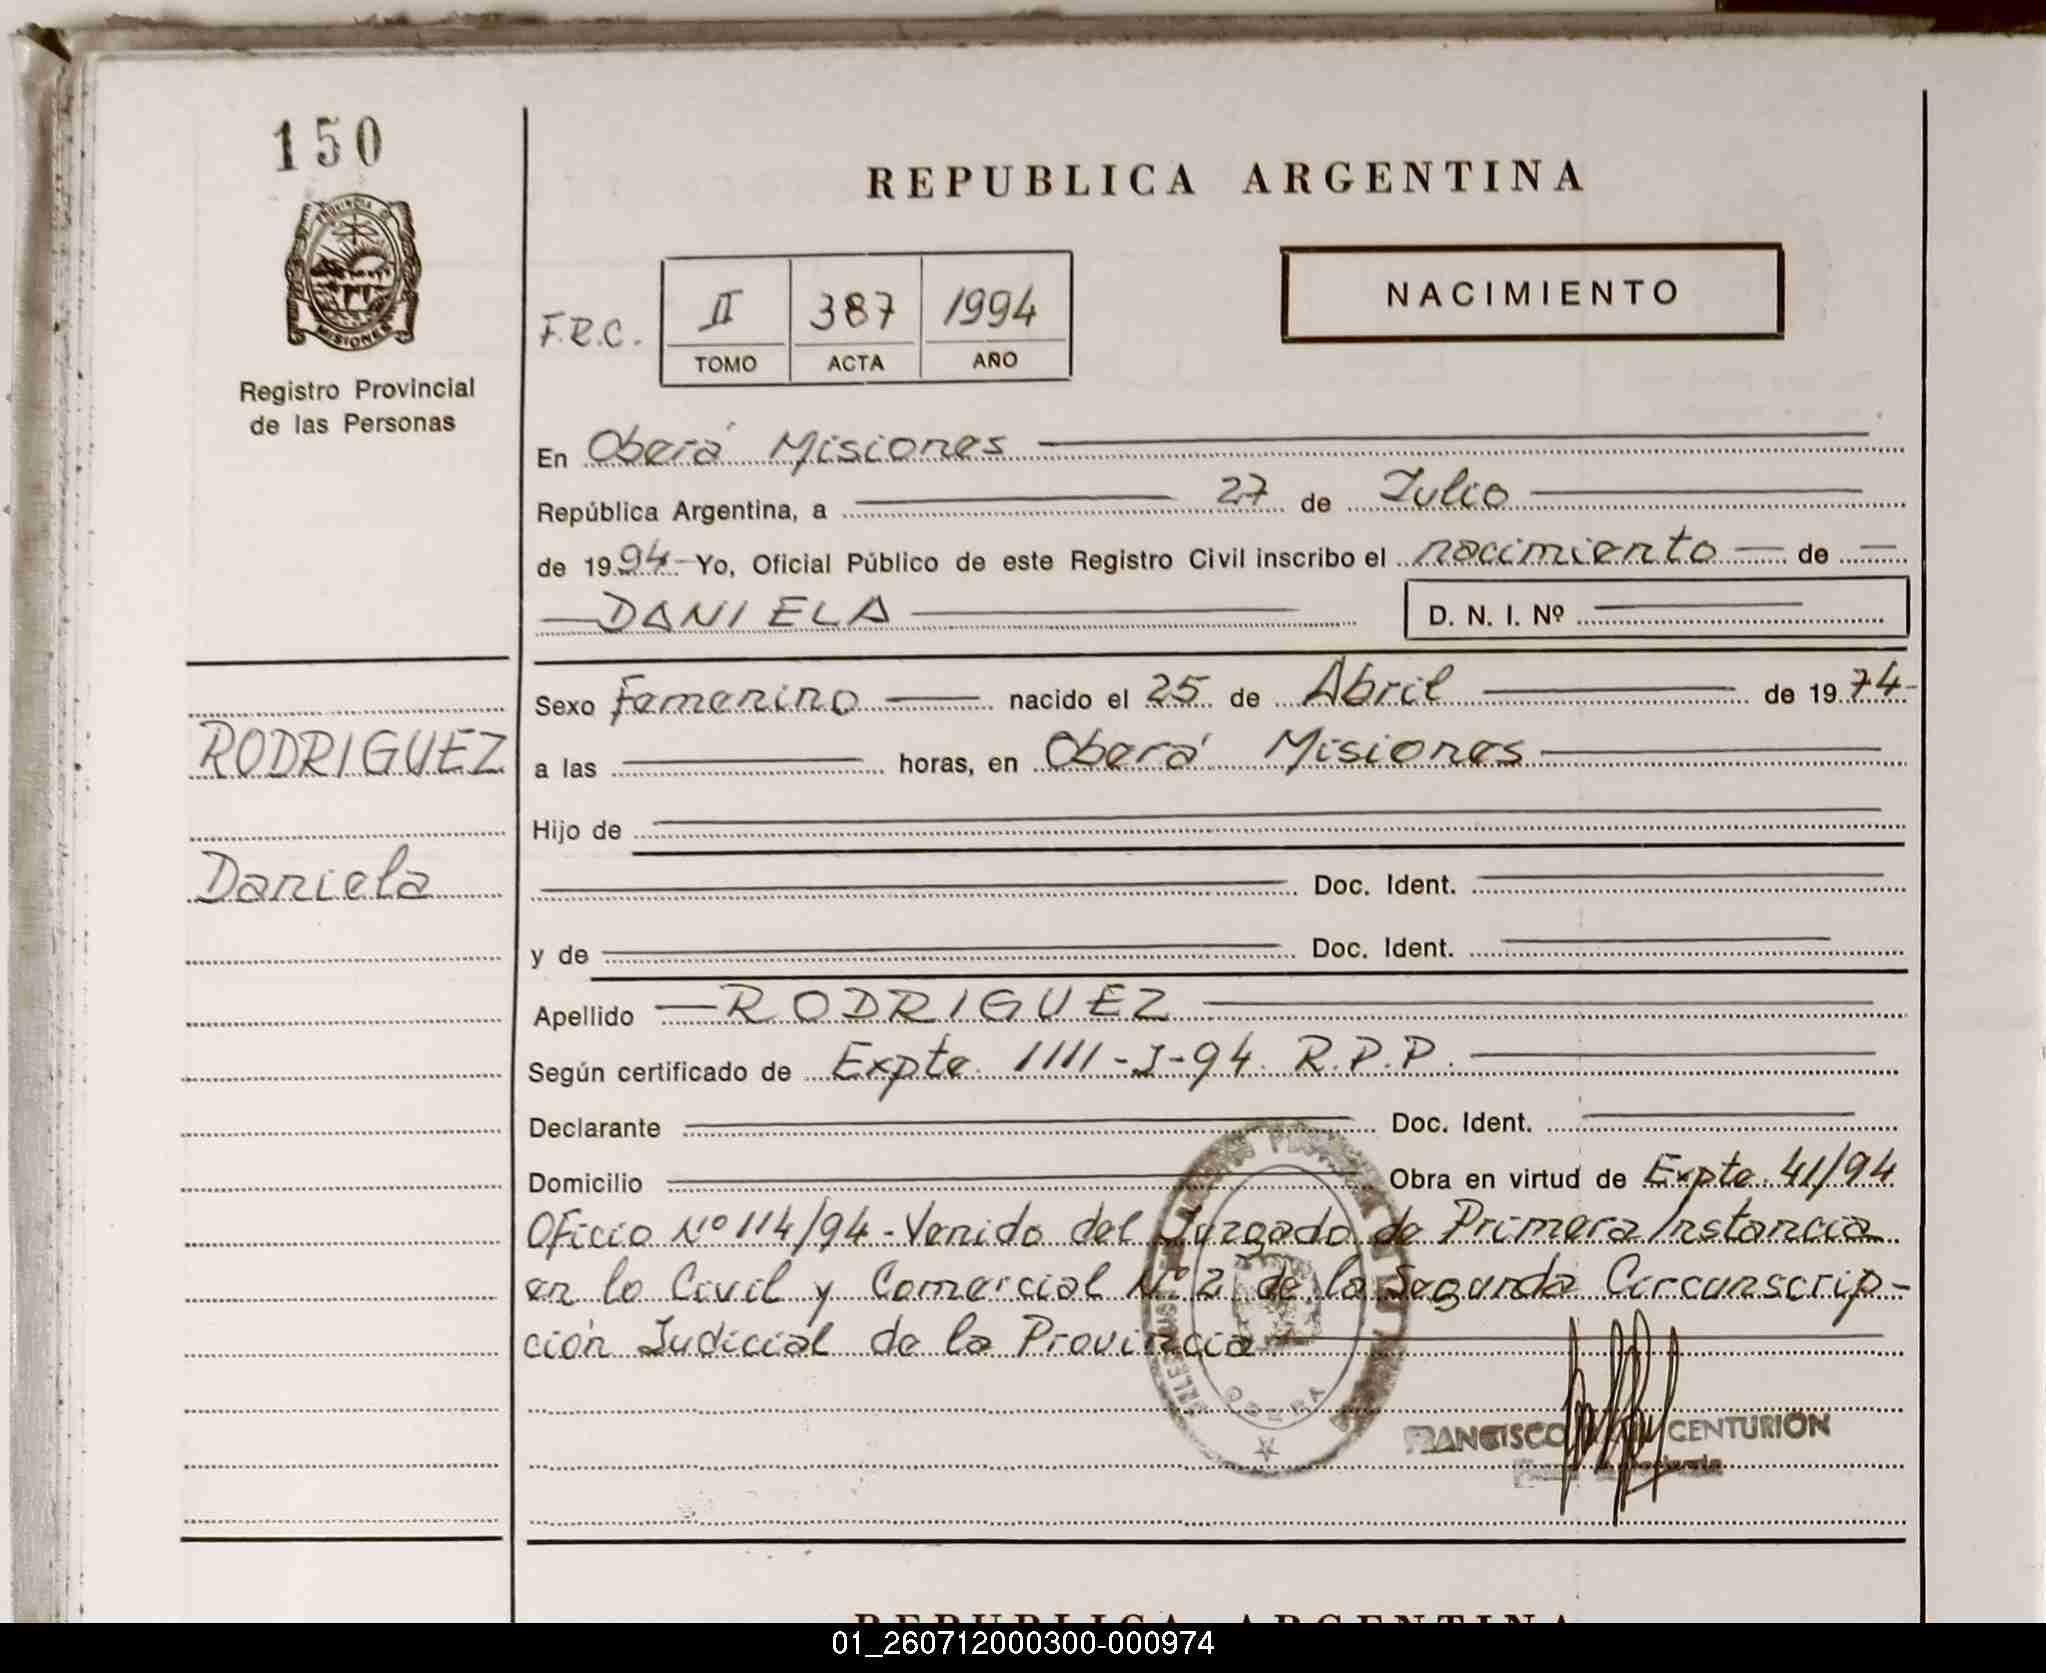 150
REPUBLICA ARGENTINA
PROVINCIA DE
MISIONES
Registro Provincial
de las Personas
NACIMIENTO
F.R.C.
II 387 1994
TOMO ACTA AÑO
En Oberá Misiones
República Argentina, a 27 de Julio
de 1994- Yo, Oficial Público de este Registro Civil inscribo el nacimiento de
DANIELA D. N. I. Nº
Sexo Femenino nacido el 25 de Abril de 1974-
RODRIGUEZ
a las horas, en Oberá Misiones
Hijo de
Daniela
Doc. Ident.
y de Doc. Ident.
Apellido RODRIGUEZ
Según certificado de Expte. 1111-J-94. R.P.P.
Declarante Doc. Ident.
Domicilio Obra en virtud de Expte. 41/94
Oficio Nº 114/94-Venido del Juzgado de Primera Instancia
en lo Civil y Comercial Nº 2 de la Segunda Circunscrip-
ción Judicial de la Provincia
OBERA
FRANCISCO CENTURION
REPUBLICA ARGENTINA
01_260712000300-000974